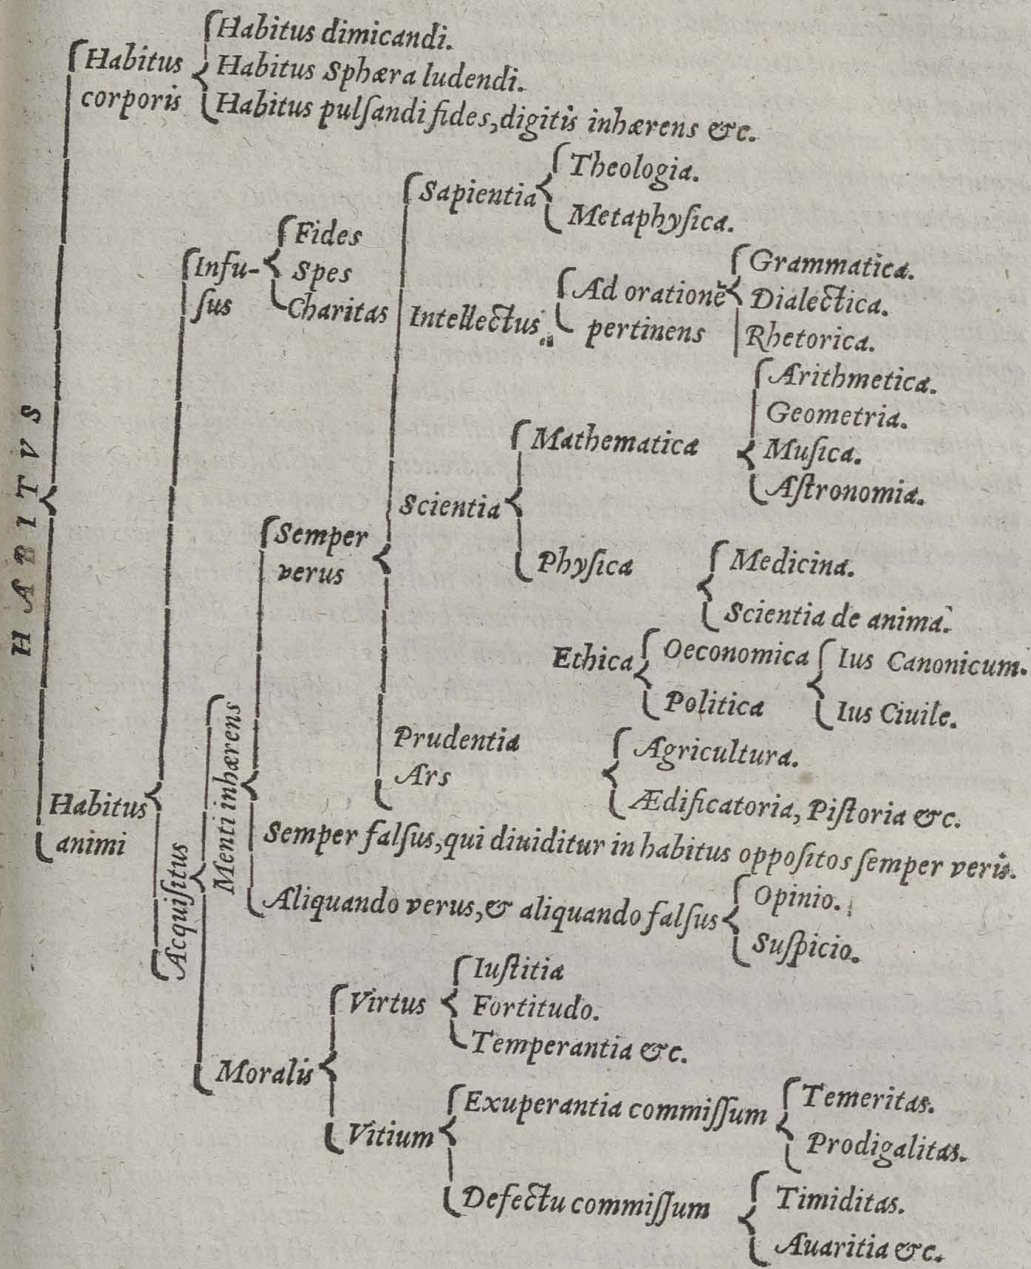 HABITVS
Habitus
corporis
Habitus dimicandi.
Habitus Sphæra ludendi.
Habitus pulſandi fides, digitis inhærens &c.
Habitus
animi
Infu-
ſus
Fides
Spes
Charitas
Acquiſitus
Menti inhærens
Semper
verus
Sapientia
Theologia.
Metaphyſica.
Intellectus
Ad orationē
pertinens
Grammatica.
Dialectica.
Rhetorica.
Scientia
Mathematica
Arithmetica.
Geometria.
Muſica.
Aſtronomia.
Phyſica
Medicina.
Scientia de anima.
Ethica
Oeconomica
Politica
Ius Canonicum.
Ius Ciuile.
Prudentia
Ars
Agricultura.
Ædificatoria, Piſtoria &c.
Semper falſus, qui diuiditur in habitus oppoſitos ſemper veris.
Aliquando verus, & aliquando falſus
Opinio.
Suſpicio.
Moralis
Virtus
Iuſtitia
Fortitudo.
Temperantia &c.
Vitium
Exuperantia commiſſum
Temeritas.
Prodigalitas.
Defectu commiſſum
Timiditas.
Auaritia &c.